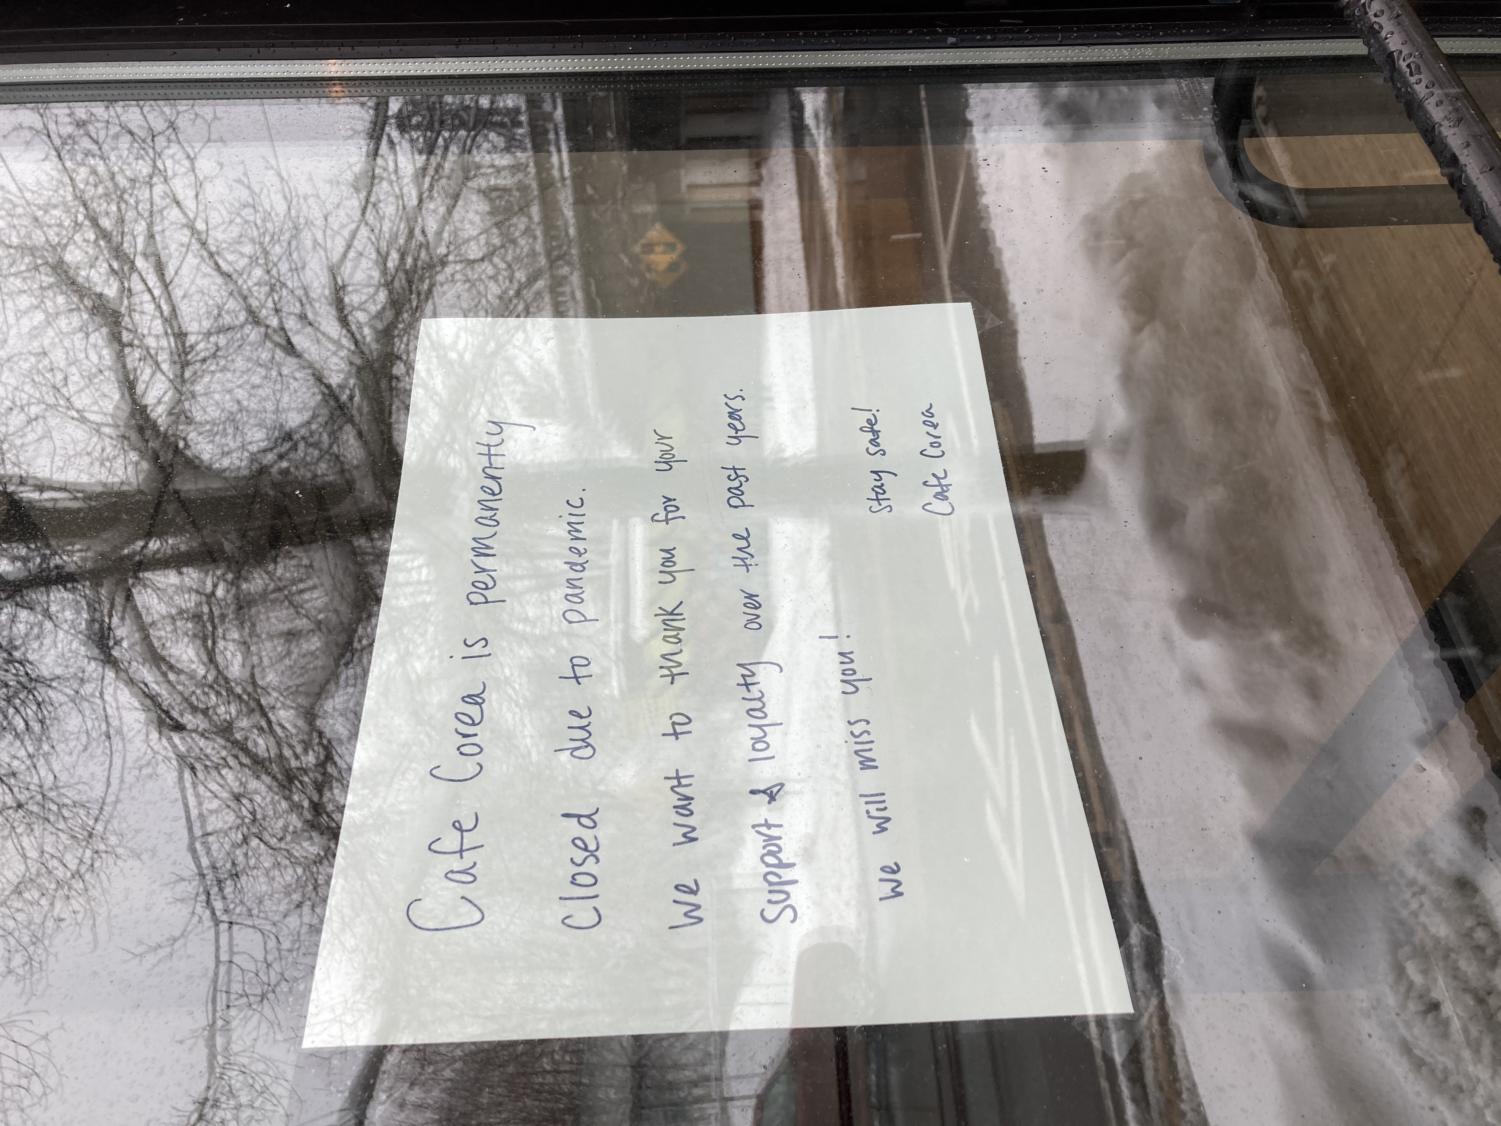 Cafe Corea is permanently
Closed due to pandemic.
We want to thank you for your
Support & loyalty over the past years.
We will miss you!
Stay safe!
Cafe Corea